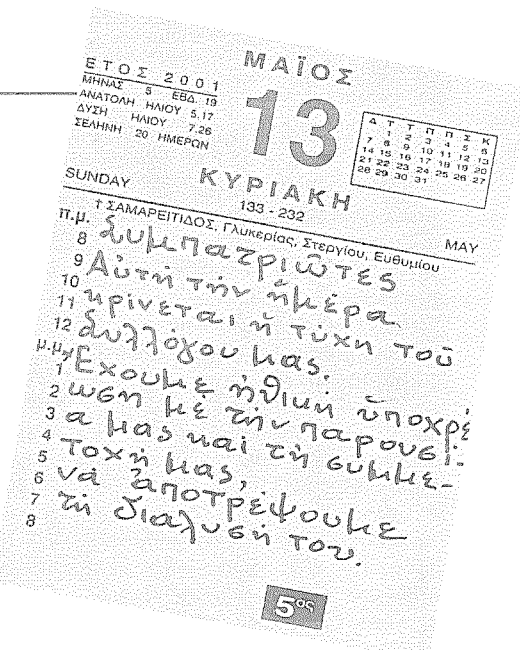 ΜΑΪΟΣ
ΕΤΟΣ 2001
ΜΗΝΑΣ 5 ΕΒΔ. 19
ΑΝΑΤΟΛΗ ΗΛΙΟΥ 5.17
ΔΥΣΗ ΗΛΙΟΥ 7.26
ΣΕΛΗΝΗ 20 ΗΜΕΡΩΝ
13
Δ Τ Τ Π Π Σ Κ
1 2 3 4 5 6
7 8 9 10 11 12 13
14 15 16 17 18 19 20
21 22 23 24 25 26 27
28 29 30 31
SUNDAY ΚΥΡΙΑΚΗ MAY
133 - 232
† ΣΑΜΑΡΕΙΤΙΔΟΣ, Γλυκερίας, Στεργίου, Ευθυμίου
π.μ.
8 Συμπατριῶτες
9 Αὐτή τήν ἡμέρα
10 κρίνεται ἡ τύχη τοῦ
11 Συλλόγου μας.
12 Ἔχουμε ἠθική ὑποχρέ
μ.μ.
1 ωση μέ τήν παρουσί-
2 α μας καί τή συμμε-
3 τοχή μας,
4 νά ἀποτρέψουμε
5 τή διάλυσή του.
6
7
8
5ος